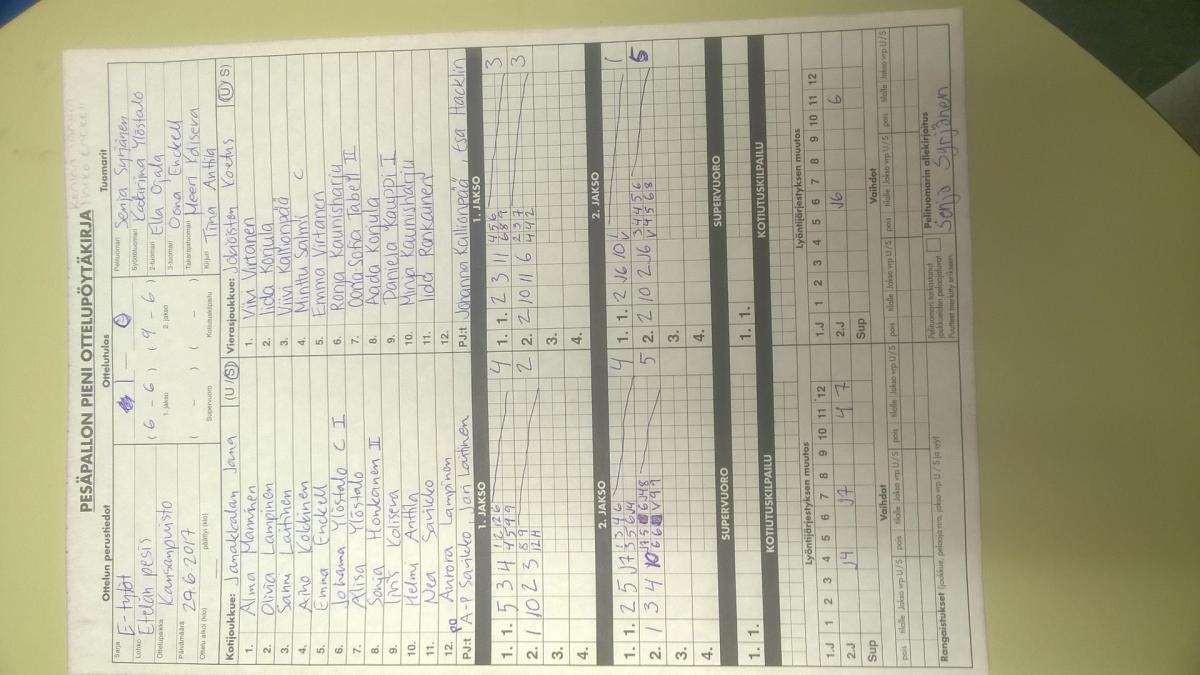 PESÄPALLON PIENI OTTELUPÖYTÄKIRJA
Ottelun perustiedot
Ottelutulos
Tuomarit
Sarja E-tytöt
Lohko Etelän pesis
Ottelupaikka Kansanpuisto
Päivämäärä 29.6.2017
Ottelu alkoi (klo) päättyi (klo)
1 – 0
( 6 – 6 ) ( 9 – 6 )
1. jakso 2. jakso
( – ) ( – )
Supervuoro Kotiutuskilpailu
Pelituomari Senja Syrjänen
Syöttötuomari Katariina Ylöstalo
2-tuomari Ella Ojala
3-tuomari Oona Enckell
Takarajatuomari Meeri Kaisera
Kirjuri Tiina Anttila
Kotijoukkue: Janakkalan Jana (U/S)
1. Alma Manninen
2. Olivia Lampinen
3. Sannu Laitinen
4. Aino Kokkinen
5. Emma Enckell
6. Johanna Ylöstalo C I
7. Alisa Ylöstalo
8. Sonja Honkanen II
9. Iiris Kaisera
10. Helmi Anttila
11. Nea Savikko
12. Aurora Lampinen
PJ:t A-P Savikko, Jari Laitinen
Vierasjoukkue: Jokioisten Koetus (U/S)
1. Viivi Virtanen
2. Iida Korjula
3. Viivi Kallionpää
4. Minttu Salmi C
5. Emma Virtanen
6. Ronja Kaunisharju
7. Oona-Sofia Tabell II
8. Aada Korjula
9. Daniela Kauppi I
10. Minja Kaunisharju
11. Iida Ronkainen
12.
PJ:t Johanna Kallionpää, Esa Hacklin
1. JAKSO
1. JAKSO
1. 1. 5 3 4
4
1. 1. 2 3 11
3
2. 1 10 2 3
2
2. 2 10 11 6
3
3.
3.
4.
4.
2. JAKSO
2. JAKSO
1. 1. 2 5 J7
4
1. 1. 2 J6 10
1
2. 1 3 4
5
2. 2 10 2 J6
5
3.
3.
4.
4.
SUPERVUORO
SUPERVUORO
1. 1.
1. 1.
KOTIUTUSKILPAILU
KOTIUTUSKILPAILU
Lyöntijärjestyksen muutos
Lyöntijärjestyksen muutos
1.J 1 2 3 4 5 6 7 8 9 10 11 12
1.J 1 2 3 4 5 6 7 8 9 10 11 12
2.J J4 J7 4 7
2.J J6 6
Sup
Sup
Vaihdot
Vaihdot
pois tilalle Jakso vrp U/S pois tilalle Jakso vrp U/S pois tilalle Jakso vrp U/S
pois tilalle Jakso vrp U/S pois tilalle Jakso vrp U/S pois tilalle Jakso vrp U/S
Rangaistukset (joukkue, pelaaja nro, jakso, vrp U/S ja syy)
Pelituomarin allekirjoitus
Senja Syrjänen